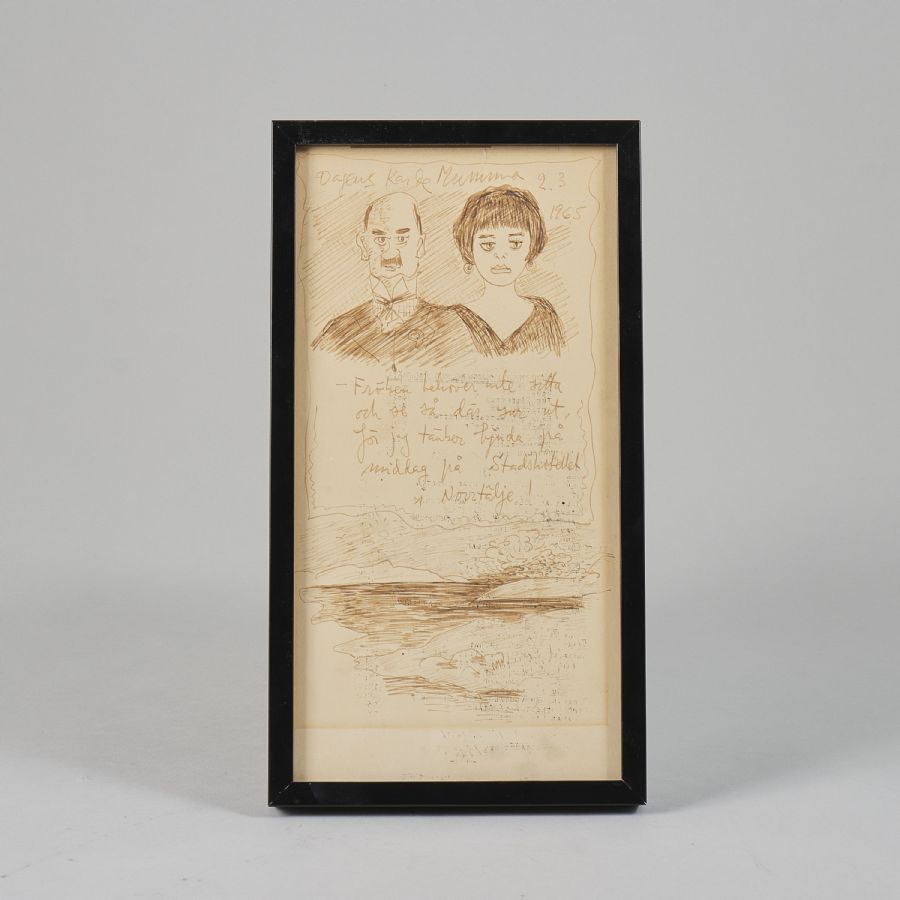 Dagens Kar de Mumma 2.3
1965
– Fröken behöver inte sitta
och se så där sur ut,
för jag tänker bjuda på
middag på Stadshotellet
i Norrtälje!